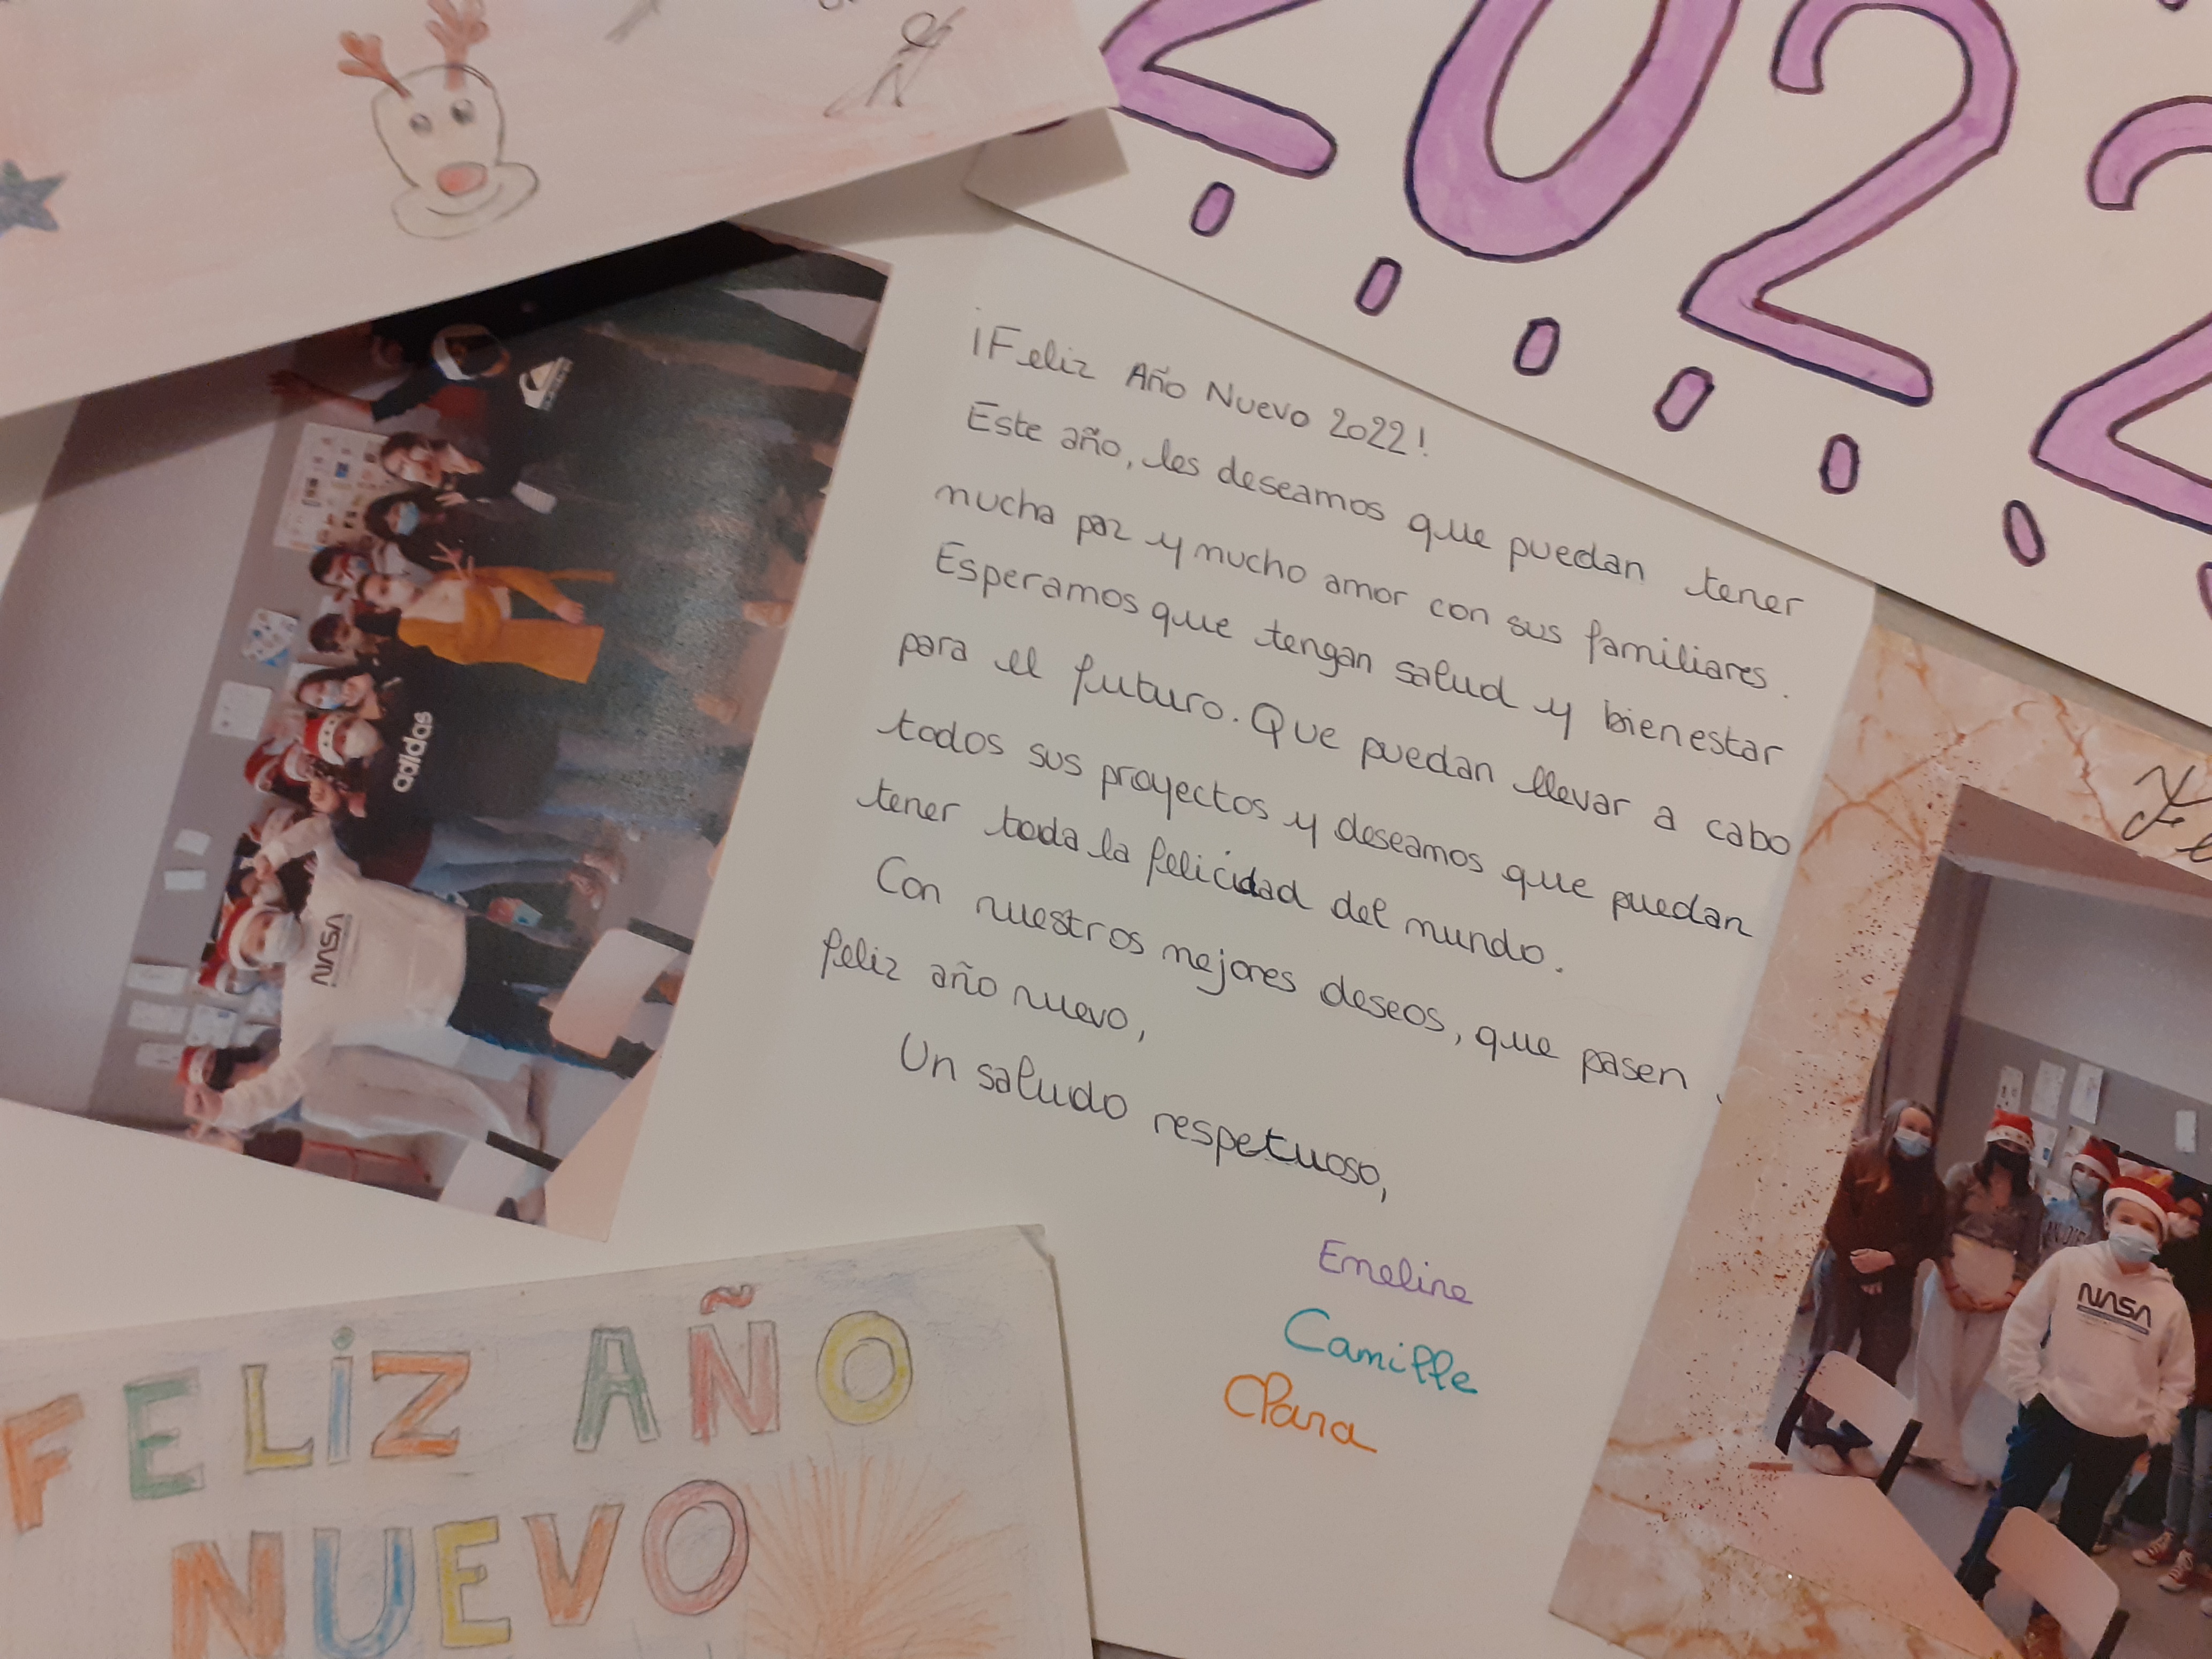 2022
2
¡Feliz Año Nuevo 2022!
Este año, les deseamos que puedan tener
mucha paz y mucho amor con sus familiares.
Esperamos que tengan salud y bienestar
para el futuro. Que puedan llevar a cabo
todos sus proyectos y deseamos que puedan
tener toda la felicidad del mundo.
Con nuestros mejores deseos, que pasen
feliz año nuevo,
Un saludo respetuoso,
Emeline
Camille
Clara
FELIZ AÑO
NUEVO
adidas
NASA
NASA